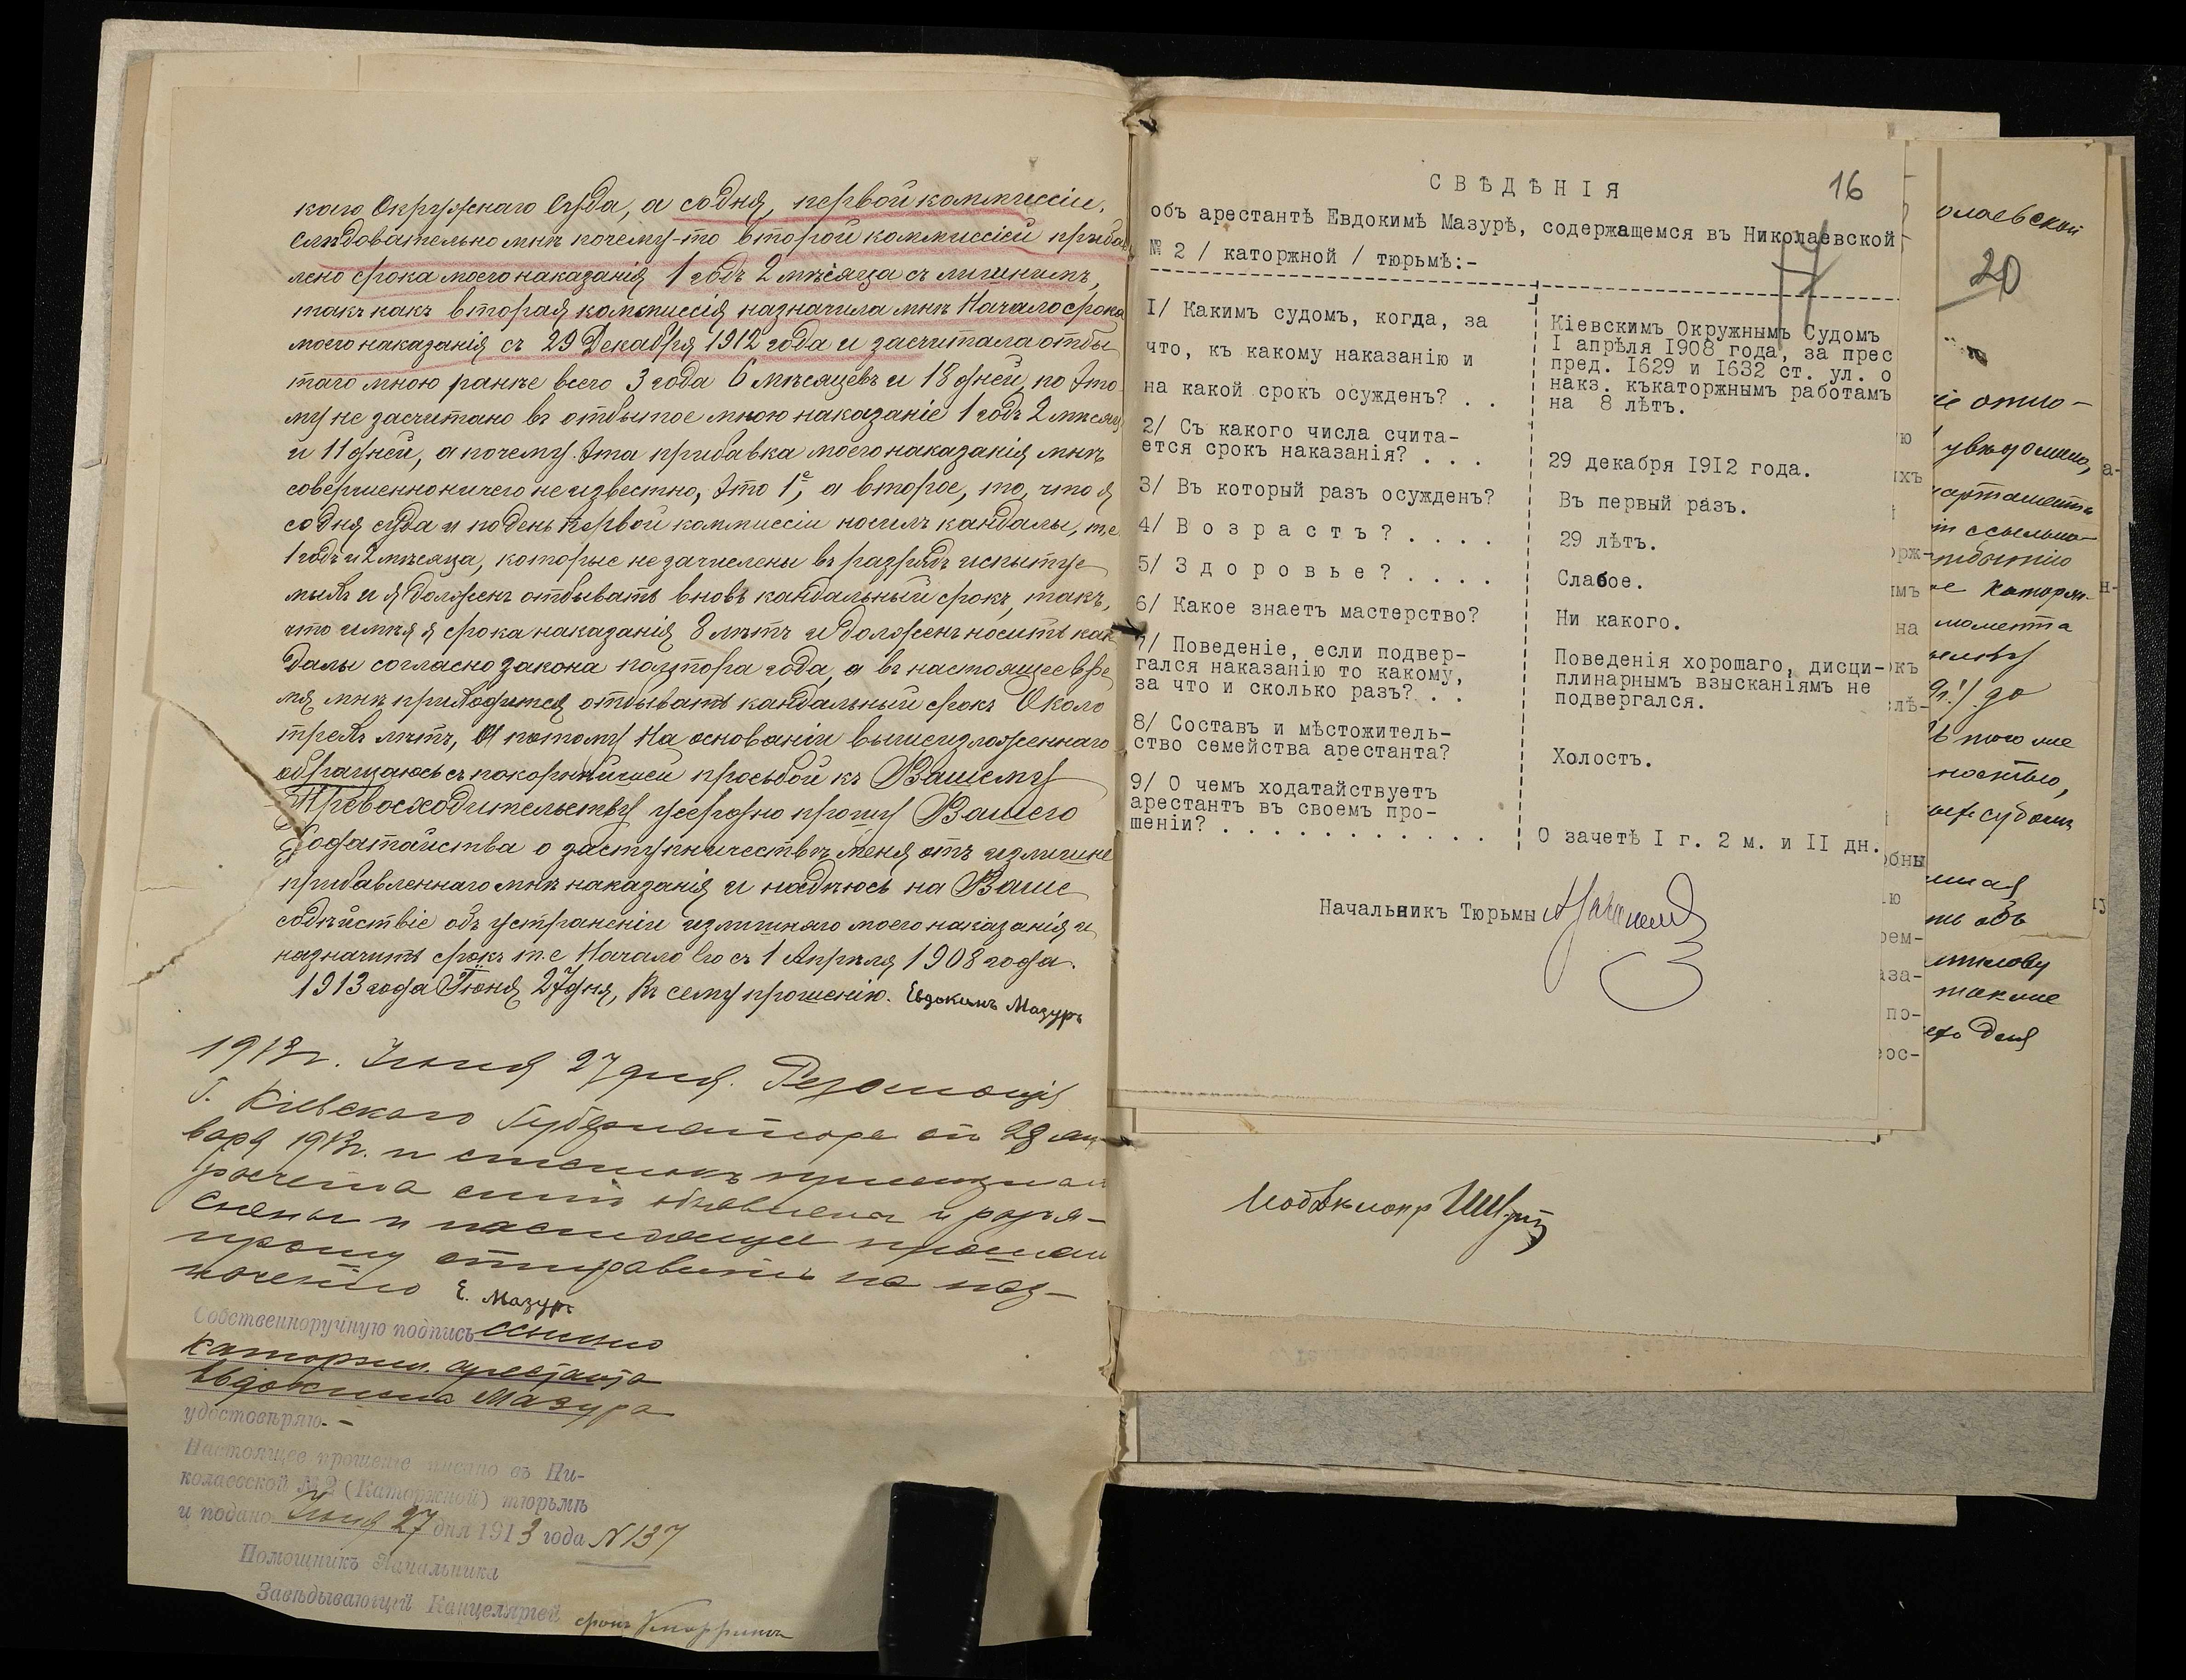 каго Окружнаго Суда, а со дня, первой коммиссіи,
слѣдовательно мнѣ почему-то второй коммиссіей прибав
лено срока моего наказанія 1 годъ 2 мѣсяца съ лишнимъ,
такъ какъ вторая коммиссія назначила мнѣ Начало срока
моего наказанія съ 29 Декабря 1912 года и засчитала отбы
таго мною ранѣе всего 3 года 6 мѣсяцевъ и 18 дней, по это
му не засчитано въ отбытое мною наказаніе 1 годъ 2 мѣсяца
и 11 дней, а почему эта прибавка моего наказанія мнѣ
совершенно ничего не извѣстно, это 1е, а второе, то, что я
со дня суда и по день первой коммиссіи носилъ кандалы, т.е.
1 годъ и 2 мѣсяца, которые не зачислены въ разрядъ испытуе
мыхъ и я долженъ отбывать вновь кандальный срокъ, такъ,
что имѣя я срока наказанія 8 лѣтъ и долженъ носить кан
далы согласно закона полтора года, а въ настоящее вре
мя, мнѣ приходится отбывать кандальный срокъ Около
трехъ лѣтъ, А потому На основаніи вышеизложеннаго
обращаюсь съ покорнѣйшей просьбой къ Вашему
Превосходительству усердно прошу Вашего
Ходатайства о заступничествѣ меня отъ излишне
прибавленнаго мнѣ наказанія и надѣюсь на Ваше
содѣйствіе объ устраненіи излишняго моего наказанія и
назначить срокъ т.е Начало Его съ 1 Апрѣля 1908 года.
1913 года Іюня 27 дня, Къ сему прошенію. Евдокимъ Мазуръ
1913 г. Іюня 27 дня. Резолюція
Г. Кіевскаго Губернатора отъ 28 ян-
варя 1913 г. и
расчета объявлена и разъя-
снены и настоящее
прошу отправить по наз-
наченію Е. Мазуръ
Собственноручную подпись ссыльно
каторжн. арестанта
Евдокима Мазура
удостовѣряю.-
Настоящее прошеніе писано въ Ни-
колаевской №2 (Каторжной) тюрьмѣ
и подано Іюня 27 дня 1913 года N137
Помощникъ Начальника
Завѣдывающій Канцеляріей фонъ
16
СВѢДѢНІЯ
объ арестантѣ Евдокимѣ Мазурѣ, содержащемся въ Николаевской
№ 2 / каторжной / тюрьмѣ:-
17
I/ Какимъ судомъ, когда, за
что, къ какому наказанію и
на какой срокъ осужденъ? . .
Кіевскимъ Окружнымъ Судомъ
I апрѣля I908 года, за прес
пред. I629 и I632 ст. ул. о
наказ. къкаторжнымъ работамъ
на 8 лѣтъ.
2/ Съ какого числа счита-
ется срокъ наказанія? . . .
29 декабря I9I2 года.
3/ Въ который разъ осужденъ?
Въ первый разъ.
4/ Возрастъ? . . . .
29 лѣтъ.
5/ Здоровье? . . . .
Слабое.
6/ Какое знаетъ мастерство?
Ни какого.
7/ Поведеніе, если подвер-
гался наказанію то какому,
за что и сколько разъ? . .
Поведенія хорошаго, дисци-
плинарнымъ взысканіямъ не
подвергался.
8/ Составъ и мѣстожитель-
ство семейства арестанта?
Холостъ.
9/ О чемъ ходатайствуетъ
арестантъ въ своемъ про-
шеніи? . . . . . . . . . . .
О зачетѣ I г. 2 м. и II дн.
Начальникъ Тюрьмы
20
олаевской
увѣдомило,
ссыльно-
отбытію
каторж-
момента
до
того же
ностью,
объ
также
дня